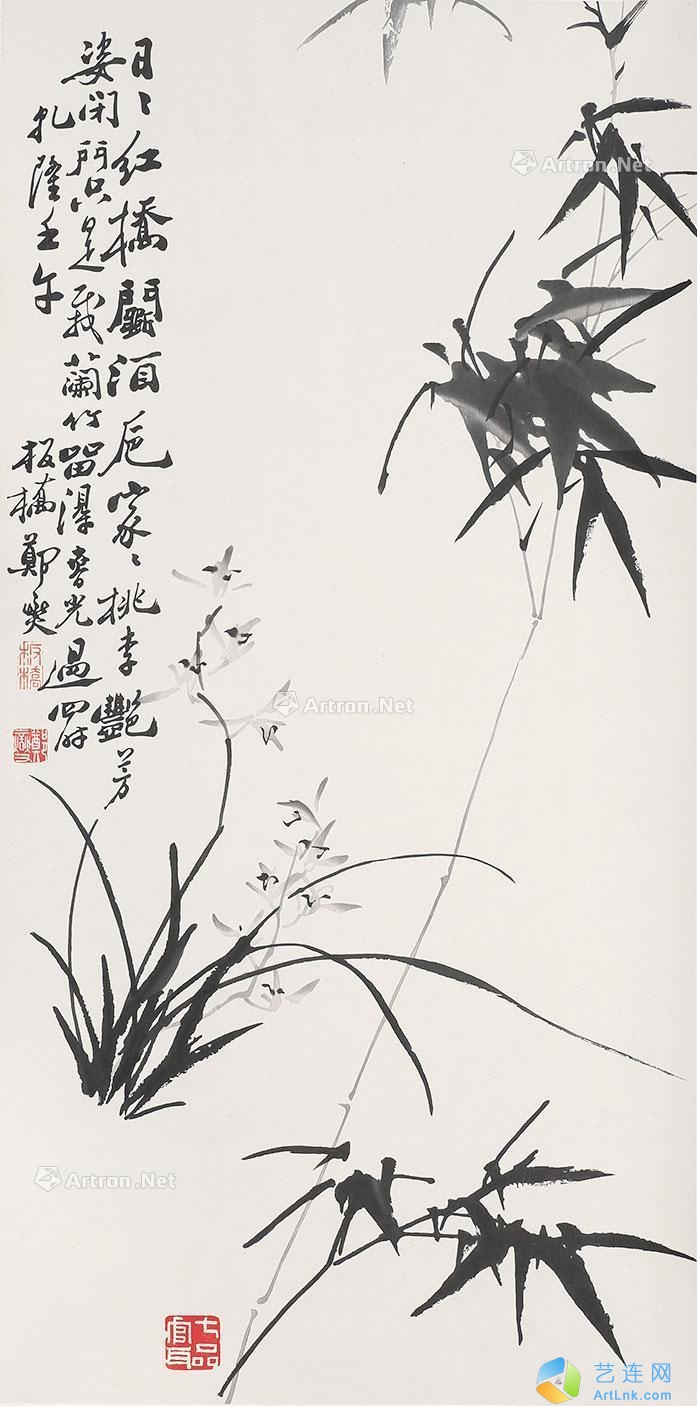 日〻红橋鬭酒巵家〻桃李艷芳
姿闭门只是栽蘭竹留得春光過四时
乾隆壬午
板橋鄭燮
板橋
鄭燮
七品官耳
Artron.Net
Artron.Net
Artron.Net
艺连网
ArtLnk.com